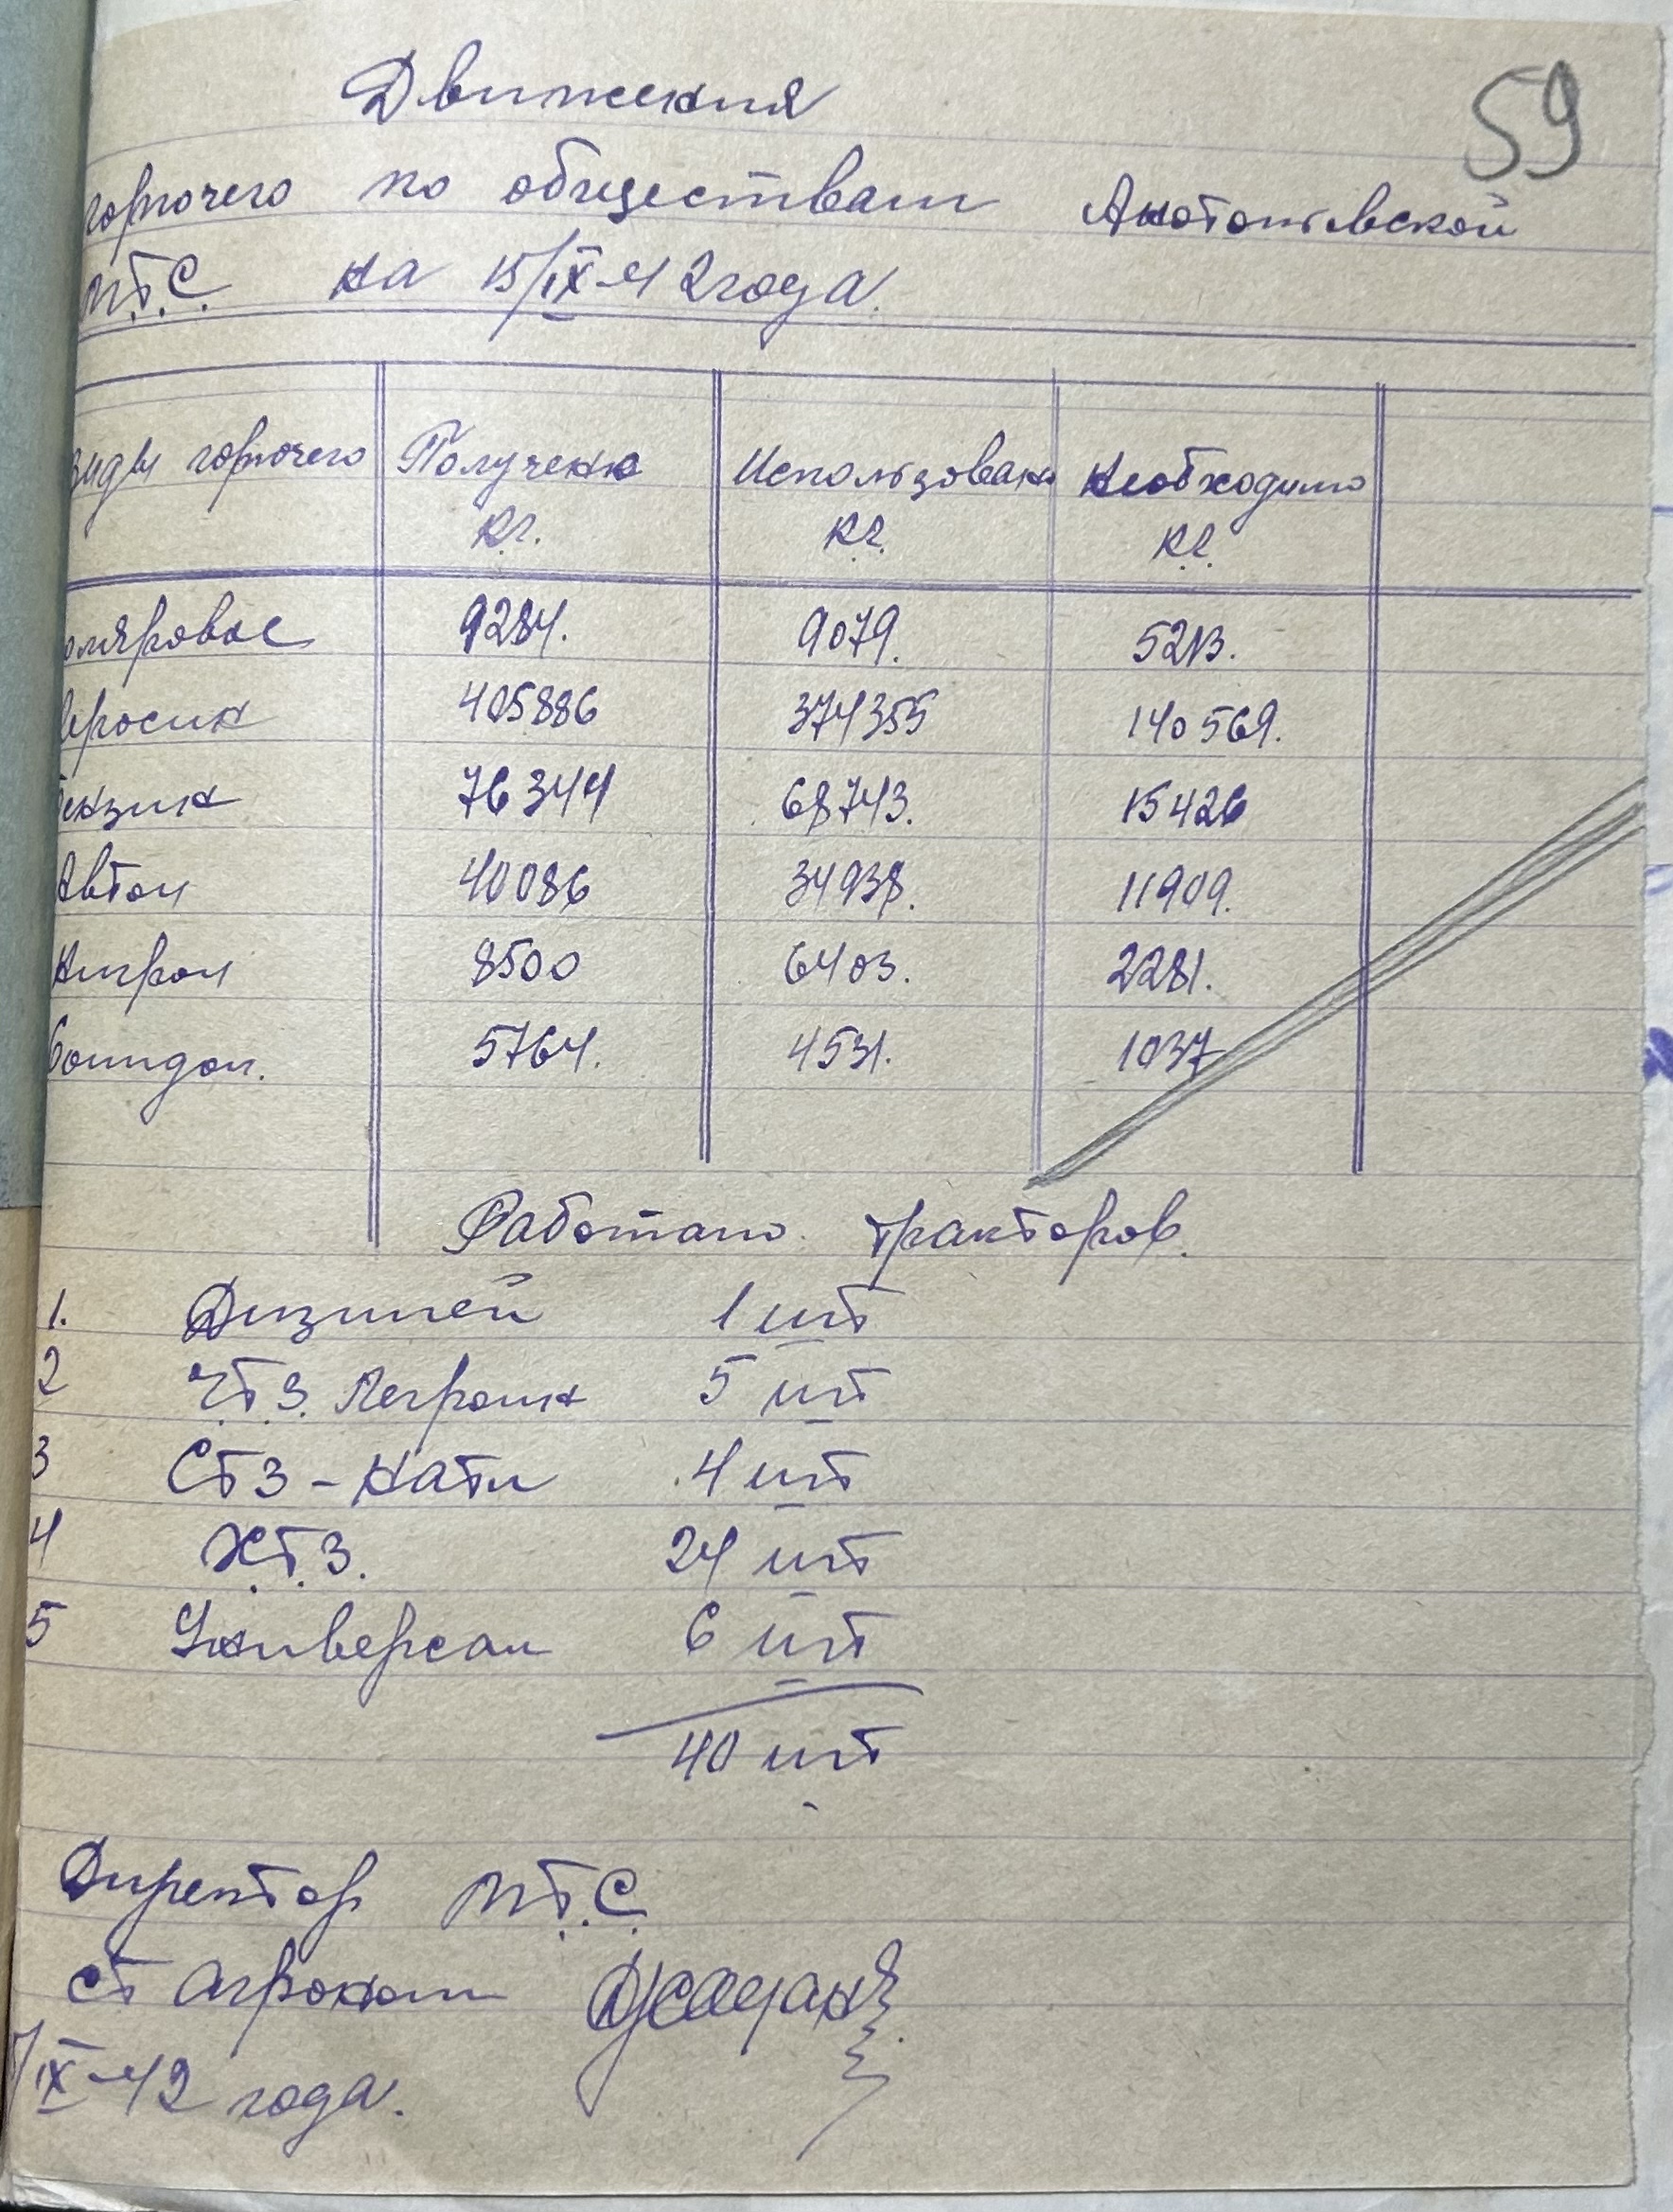 59
Движения
горючего по обществам
М.Т.С. на 15/IX-42 года.
виды горючего Получено Использовано Необходимо
кг. кг. кг.
оляровое 9284. 9079. 5213.
еросин 405886 374355 140569.
ензин 76344 68743. 15426
Автол 40086 34938. 11909.
Нигрол 8500 6403. 2281.
Солидол. 5764. 4531. 1037
Работало тракторов.
1. Дизилей 1 шт
2 Ч.Т.З. Легроин 5 шт
3 СТЗ-Нати 4 шт
4 Х.Т.З. 24 шт
5 Универсал 6 шт
40 шт
Директор М.Т.С.
ст Агроном
/IX-42 года.